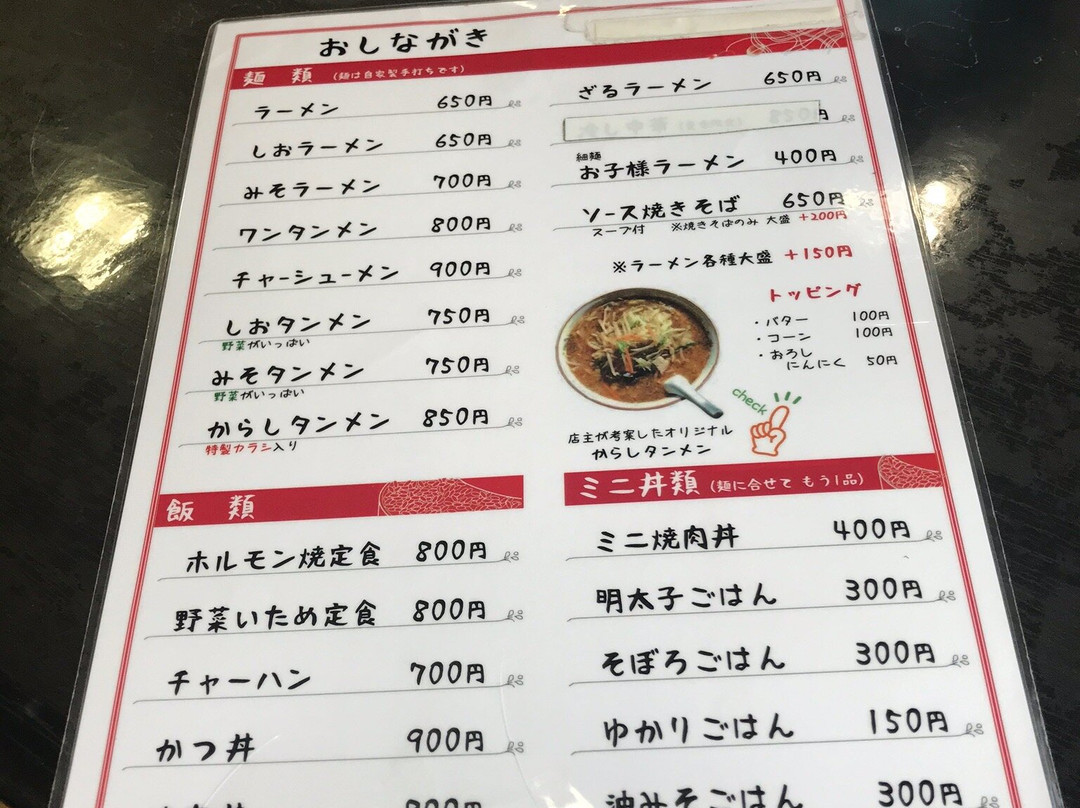 おしながき
麺類 (麺は自家製手打ちです)
ラーメン 650円
しおラーメン 650円
みそラーメン 700円
ワンタンメン 800円
チャーシューメン 900円
しおタンメン 750円
野菜がいっぱい
みそタンメン 750円
野菜がいっぱい
からしタンメン 850円
特製カラシ入り
ざるラーメン 650円
円
細麺
お子様ラーメン 400円
ソース焼きそば 650円
スープ付 ※焼きそばのみ 大盛 +200円
※ラーメン各種大盛 +150円
トッピング
・バター 100円
・コーン 100円
・おろし
にんにく 50円
check
店主が考案したオリジナル
からしタンメン
飯類
ホルモン焼定食 800円
野菜いため定食 800円
チャーハン 700円
かつ丼 900円
ミニ丼類 (麺に合せて もう1品)
ミニ焼肉丼 400円
明太子ごはん 300円
そぼろごはん 300円
ゆかりごはん 150円
油みそごはん 300円